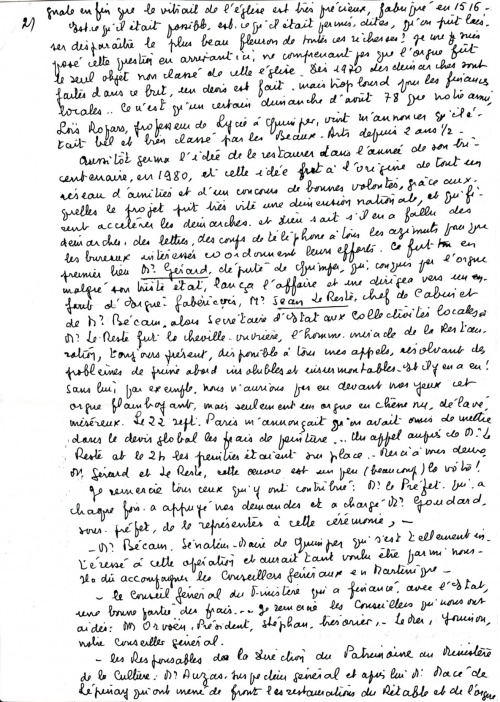 2) gnale enfin que le vitrail de l'église est très précieux, fabriqué en 1516 -
Est-ce qu'il était possible, est-ce qu'il était permis, dites, qu'on pût lais-
ser disparaître le plus beau fleuron de toutes ces richesses? Je me suis
posé cette question en arrivant ici, ne comprenant pas que l'orgue fût
le seul objet non classé de cette église. Dès 1970 des démarches sont
faites dans ce but, un devis est fait. mais trop lourd pour les finances
locales.. Ce n'est qu'un certain dimanche d'août 78 que notre ami,
Loïs Rogars, professeur de Lycée à Quimper, vint m'annoncer qu'il é-
tait bel et bien classé par les Beaux-Arts depuis 2 ans 1/2 -
Aussitôt germa l'idée de le restaurer dans l'année de son tri-
centenaire, en 1980, et cette idée fut à l'origine de tout un
réseau d'amitiés et d'un concours de bonnes volontés, grâce aux-
quelles le projet prit très vite une dimension nationale, et qui fi-
rent accélérer les démarches. et Dieu sait s'il en a fallu des
démarches, des lettres, des coups de téléphone à tous les azimuts pour que
les bureaux intéressés coordonnent leurs efforts. Ce fut en
premier lieu Mr Gérard, député de Quimper, qui, conquis par l'orgue
malgré son triste état, lança l'affaire et me dirigea vers un en-
fant d'Ergué-Gabéricois, Mr Jean Le Reste, chef de Cabinet
de Mr Bécam, alors Secrétaire d'Etat aux Collectivités locales
Mr Le Reste fut la cheville-ouvrière, l'homme-miracle de la Restau-
ration, toujours présent, disponible à tous mes appels, résolvant des
problèmes de prime abord insolubles et insurmontables - et il y en a eu!
Sans lui, par exemple, nous n'aurions pas eu devant nos yeux cet
orgue flamboyant, mais seulement un orgue en chêne nu, délavé
miséreux. Le 22 sept. Paris m'annonçait qu'on avait omis de mettre
dans le devis global les frais de peinture ... Un appel auprès de Mr Le
Reste et le 24 les peintres étaient sur place. Merci à vous deux,
M. Gérard et Le Reste, cette œuvre est un peu (beaucoup) la vôtre!
Je remercie tous ceux qui y ont contribué: Mr le Préfet qui, à
chaque fois a appuyé nos demandes et a chargé Mr Goudard,
sous-préfet, de le représenter à cette cérémonie, -
- Mr Bécam, Sénateur-Maire de Quimper qui s'est tellement in-
téressé à cette opération et aurait tant voulu être parmi nous -
Il a dû accompagner les Conseillers Généraux en Martinique -
- le Conseil Général du Finistère qui a financé, avec l'Etat,
une bonne partie des frais.. - Je remercie les Conseillers qui nous ont
aidés: M Orvoën, Président, Stéphan, trésorier, - Le Ber, Youinou,
notre Conseiller général.
- les Responsables de la Direction du Patrimoine au Ministère
de la Culture: Mr Auzas, inspecteur général et après lui Mr Macé de
Lépinay qui ont mené de front les restaurations du Rétable et de l'orgue